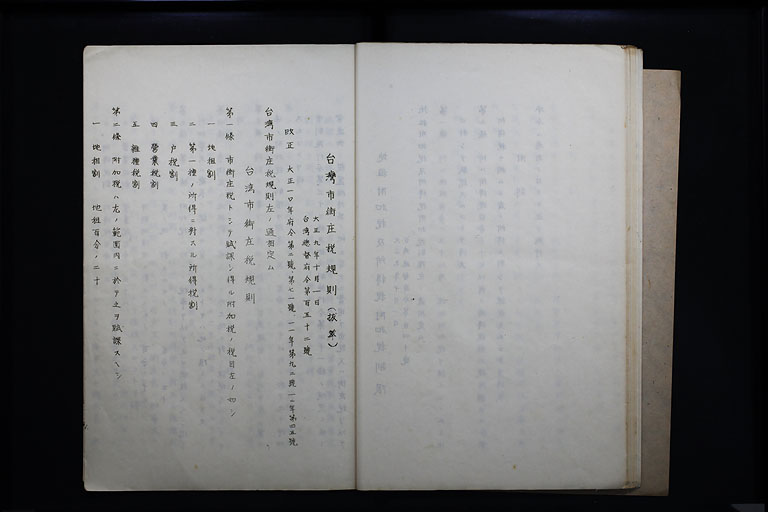 台灣市街庄税規則（抜萃）
大正九年十月一日
台湾總督府令第百五十二號
改正 大正一〇年府令第二號、第七一號、一一年第九二號、一二年第四五號
台湾市街庄税規則左ノ通相定ム
台湾市街庄税規則
第一條 市街庄税トシテ賦課シ得ル附加税ノ税目左ノ如シ
一 地租割
二 第一種ノ所得ニ對スル所得税割
三 戸税割
四 營業税割
五 雜種税割
第二條 附加税ハ左ノ範囲内ニ於テ之ヲ賦課スヘシ
一 地租割 地租百分ノ二十